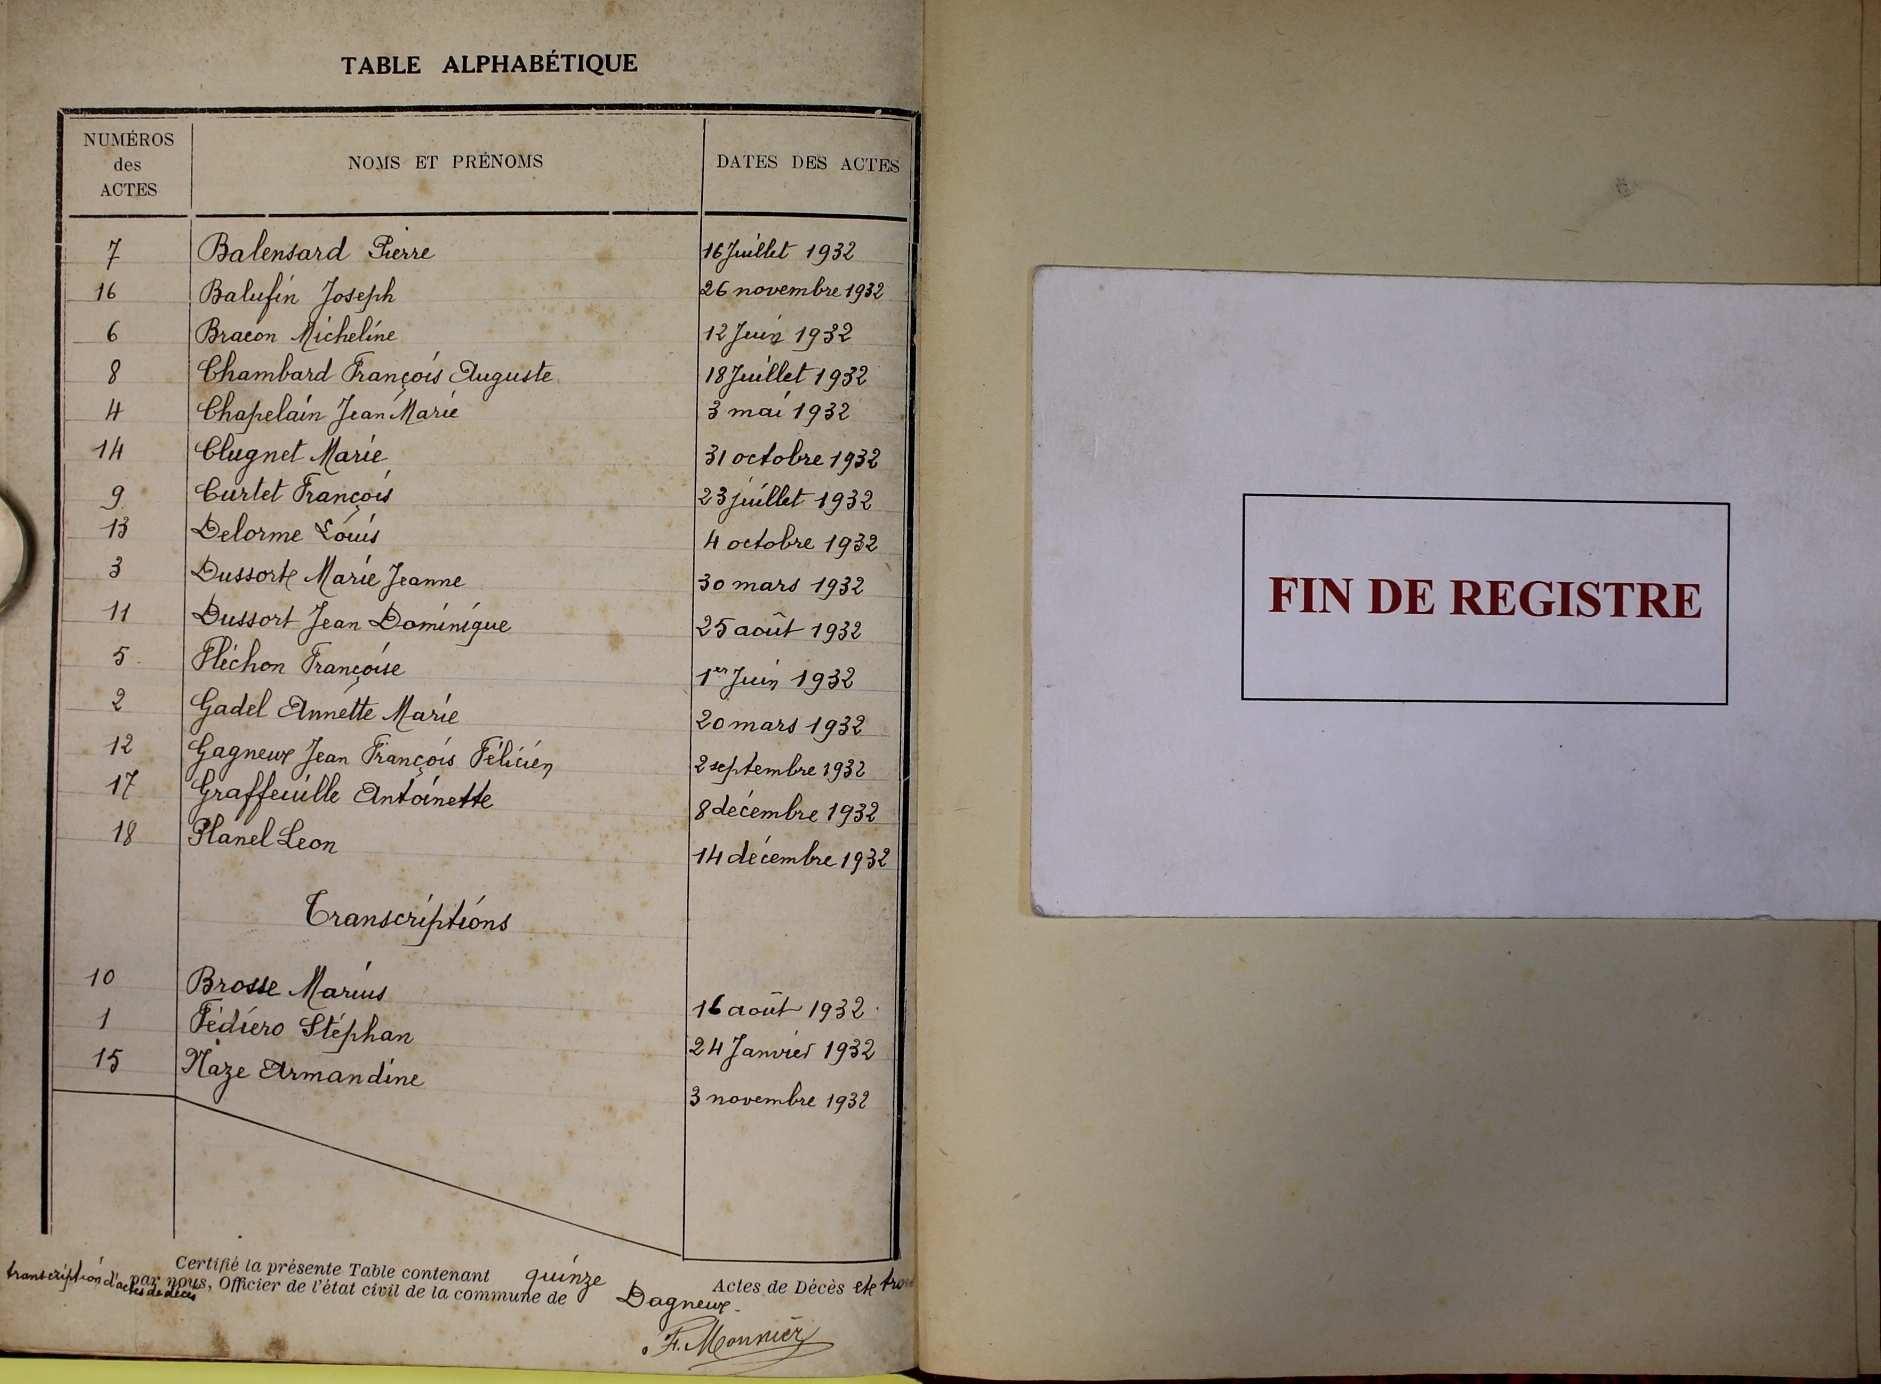 TABLE ALPHABÉTIQUE
NUMÉROS des ACTES NOMS ET PRÉNOMS DATES DES ACTES
7 Balensard Pierre 16 Juillet 1932
16 Balufin Joseph 26 novembre 1932
6 Bracon Micheline 12 Juin 1932
8 Chambard François Auguste 18 Juillet 1932
4 Chapelain Jean Marie 3 mai 1932
14 Clugnet Marie 31 octobre 1932
9 Curtet François 23 juillet 1932
13 Delorme Louis 4 octobre 1932
3 Dussort Marie Jeanne 30 mars 1932
11 Dussort Jean Dominique 25 août 1932
5 Fléchon Françoise 1er Juin 1932
2 Gadel Annette Marie 20 mars 1932
12 Gagneux Jean François Félicien 2 septembre 1932
17 Graffeuille Antoinette 8 décembre 1932
18 Planel Leon 14 décembre 1932
Transcriptions
10 Brosse Marius 16 août 1932
1 Fédiéro Stéphan 24 Janvier 1932
15 Naze Armandine 3 novembre 1932
Certifié la présente Table contenant quinze Actes de Décès et trois
transcription d'actes de décès par nous, Officier de l'état civil de la commune de Dagneux.
F. Monnier
FIN DE REGISTRE